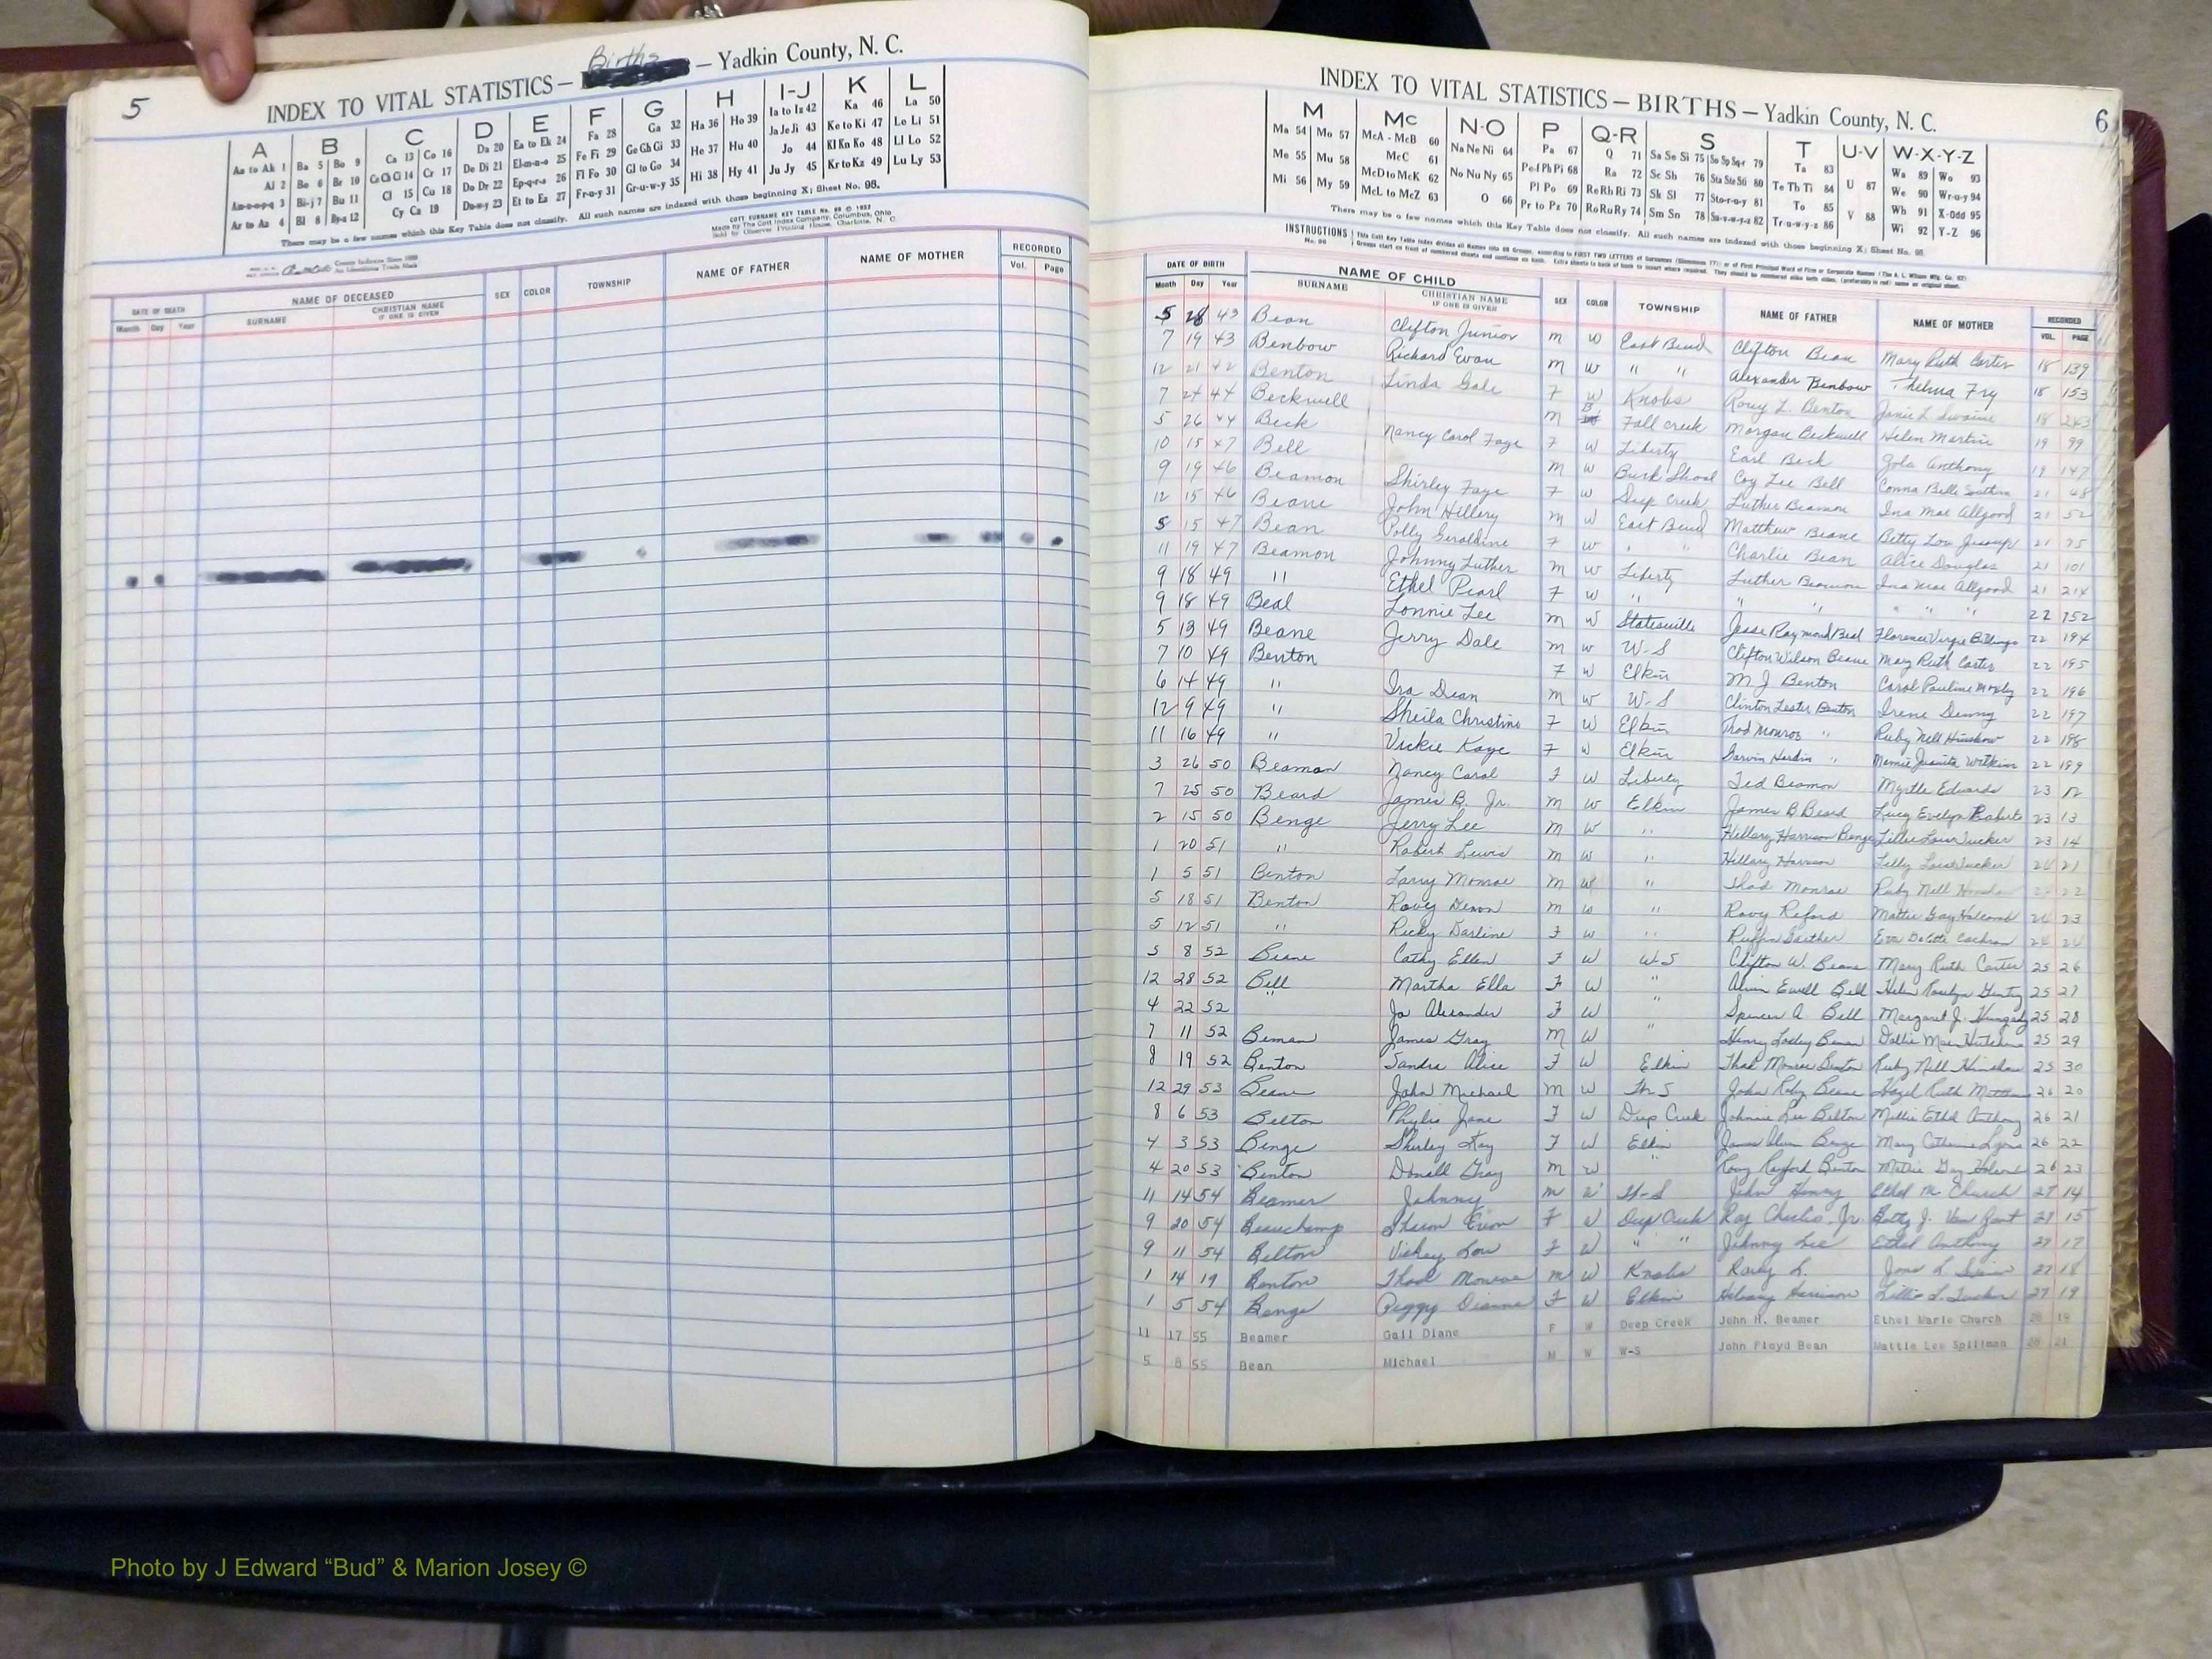 5
Births
INDEX TO VITAL STATISTICS — — Yadkin County, N. C.
A B C D E F G H I-J K L
Aa to Ak 1 Ba 5 Bo 9 Ca 13 Co 16 Da 20 Ea to Ek 24 Fa 28 Ga 32 Ha 36 Ho 39 Ia to Iz 42 Ka 46 La 50
Al 2 Be 6 Br 10 Ce Ch Ci 14 Cr 17 De Di 21 El-m-n-o 25 Fe Fi 29 Ge Gh Gi 33 He 37 Hu 40 Ja Je Ji 43 Ke to Ki 47 Le Li 51
Am-n-o-p-q 3 Bi-j 7 Bu 11 Cl 15 Cu 18 Do Dr 22 Ep-q-r-s 26 Fl Fo 30 Gl to Go 34 Hi 38 Hy 41 Jo 44 Kl Kn Ko 48 Ll Lo 52
Ar to Az 4 Bl 8 By-a 12 Cy Cz 19 Du-w-y 23 Et to Ez 27 Fr-u-y 31 Gr-u-w-y 35 Ju Jy 45 Kr to Kz 49 Lu Ly 53
There may be a few names which this Key Table does not classify. All such names are indexed with those beginning X; Sheet No. 95.
COTT SURNAME KEY TABLE
Made by The Cott Index Company, Columbus, Ohio
Sold by Observer Printing House, Charlotte, N. C.
DATE OF DEATH NAME OF DECEASED SEX COLOR TOWNSHIP NAME OF FATHER NAME OF MOTHER RECORDED
Month Day Year SURNAME CHRISTIAN NAME IF ONE IS GIVEN Vol. Page
INDEX TO VITAL STATISTICS — BIRTHS — Yadkin County, N. C.
6
M Mc N-O P Q-R S T U-V W-X-Y-Z
Ma 54 Mo 57 McA - McB 60 Na Ne Ni 64 Pa 67 Q 71 Sa Se Si 75 So Sp Sq-r 79 Ta 83 Wa 89 Wo 93
Me 55 Mu 58 McC 61 No Nu Ny 65 Pe-f Ph Pi 68 Ra 72 Sc Sh 76 Sta Ste Sti 80 Te Th Ti 84 U 87 We 90 Wr-u-y 94
Mi 56 My 59 McD to McK 62 Pl Po 69 Re Rh Ri 73 Sk Sl 77 Sto-r-u-y 81 To 85 Wh 91 X-Odd 95
McL to McZ 63 O 66 Pr to Pz 70 Ro Ru Ry 74 Sm Sn 78 Su-v-w-y-z 82 Tr-u-w-y-z 86 V 88 Wi 92 Y-Z 96
There may be a few names which this Key Table does not classify. All such names are indexed with those beginning X; Sheet No. 95.
INSTRUCTIONS
DATE OF BIRTH NAME OF CHILD SEX COLOR TOWNSHIP NAME OF FATHER NAME OF MOTHER RECORDED
Month Day Year SURNAME CHRISTIAN NAME IF ONE IS GIVEN VOL. PAGE
5 28 43 Bean Clifton Junior m W East Bend Clifton Bean Mary Ruth Carter 18 139
7 19 43 Benbow Richard Evan m W " " Alexander Benbow Thelma Fry 18 153
12 21 42 Benton Linda Gale F W Knobs Roey L. Benton 18 243
7 24 44 Beckwell m B Fall creek Morgan Beckwell Helen Martin 19 99
5 26 44 Beck Nancy Carol Faye F W Liberty Earl Beck Zola Anthony 19 147
10 15 47 Bell m W Buck Shoal Coy Lee Bell Conna Belle Southern 21 48
9 19 46 Beamon Shirley Faye F W Deep Creek Luther Beamon Ina Mae Allgood 21 52
12 15 46 Beane John Hillery m W East Bend Matthew Beane Betty Lou Jessup 21 75
5 15 47 Bean Polly Geraldine F W " " Charlie Bean Alice Douglas 21 101
11 19 47 Beamon Johnny Luther m W Liberty Luther Beamon Ina Mae Allgood 21 214
9 18 49 " Ethel Pearl F W " " " " " " 22 152
9 18 49 Beal Lonnie Lee m W Statesville Jesse Raymond Beal Florence Virgie Billings 22 194
5 13 49 Beane Jerry Dale m W W-S Clifton Wilson Beane Mary Ruth Carter 22 195
7 10 49 Benton F W Elkin M J Benton Carol Pauline 22 196
6 14 49 " Ira Dean m W W-S Clinton Lester Benton Irene Denny 22 197
12 9 49 " Sheila Christine F W Elkin Thad Monroe " Ruby Nell Hinshaw 22 198
11 16 49 " Vickie Kaye F W Elkin Garvin Hardin " Mamie Juanita Wilkins 22 199
3 26 50 Beaman Nancy Carol F W Liberty Ted Beamon Myrtle Edwards 23 12
7 25 50 Beard James B. Jr. m W Elkin James B Beard Lucy Evelyn Roberts 23 13
2 15 50 Benge Jerry Lee m W " Hillary Harrison Benge Lillie Louise Tucker 23 14
1 20 51 " Robert Lewis m W " Hillary Harrison Lilly Louise Tucker 24 21
1 5 51 Benton Larry Monroe m W " Thad Monroe Ruby Nell 22
5 18 51 Benton Rovey m W " Rovy Raford Mattie Gay Holcomb 24 23
5 12 51 " Ricky Darline F W " Ruffin Garther Eva Cochran 24 24
5 8 52 Beane Cathy Ellen F W W-S Clifton W. Beane Mary Ruth Carter 25 26
12 28 52 Bell Martha Ella F W " Alvin Ewell Bell Helen Roselyn Gentry 25 27
4 22 52 " Jo Alexander F W " Spencer A Bell Margaret J. 25 28
7 11 52 Beman James Gray M W " Henry Losley Beman Dollie Mae Hutchins 25 29
8 19 52 Benton Sandra Alice F W Elkin Thad Monroe Benton Ruby Nell Hinshaw 25 30
12 29 53 Beane John Michael m W W-S John Roby Beane Hazel Ruth Matthews 26 20
8 6 53 Belton Phylis Jane F W Deep Creek Johnnie Lee Belton Mollie Ethel Anthony 26 21
4 3 53 Benge Shirley Kay F W Elkin James Alvin Benge Mary Catherine Lyons 26 22
4 20 53 Benton Donald Gray m W " Roey Rayford Benton Mattie Gay 26 23
11 14 54 Beamer Johnny m W W-S John Henry Ethel M. Church 27 14
9 20 54 Beauchamp Sharon F W Deep Creek Ray Charlie Jr. Betty J. Van Zant 27 15
9 11 54 Belton Vickey Lou F W " " Johnny Lee Ethel Anthony 27 17
1 14 19 Benton Thad Monroe m W Knobs Roey L. 27 18
1 5 54 Benge Peggy Dianne F W Elkin Hilary Harrison Lillie L. Tucker 27 19
11 17 55 Beamer Gail Diane F W Deep Creek John H. Beamer Ethel Marie Church 28 19
5 8 55 Bean Michael M W W-S John Floyd Bean Mattie Lee Spillman 28 21
Photo by J Edward “Bud” & Marion Josey ©